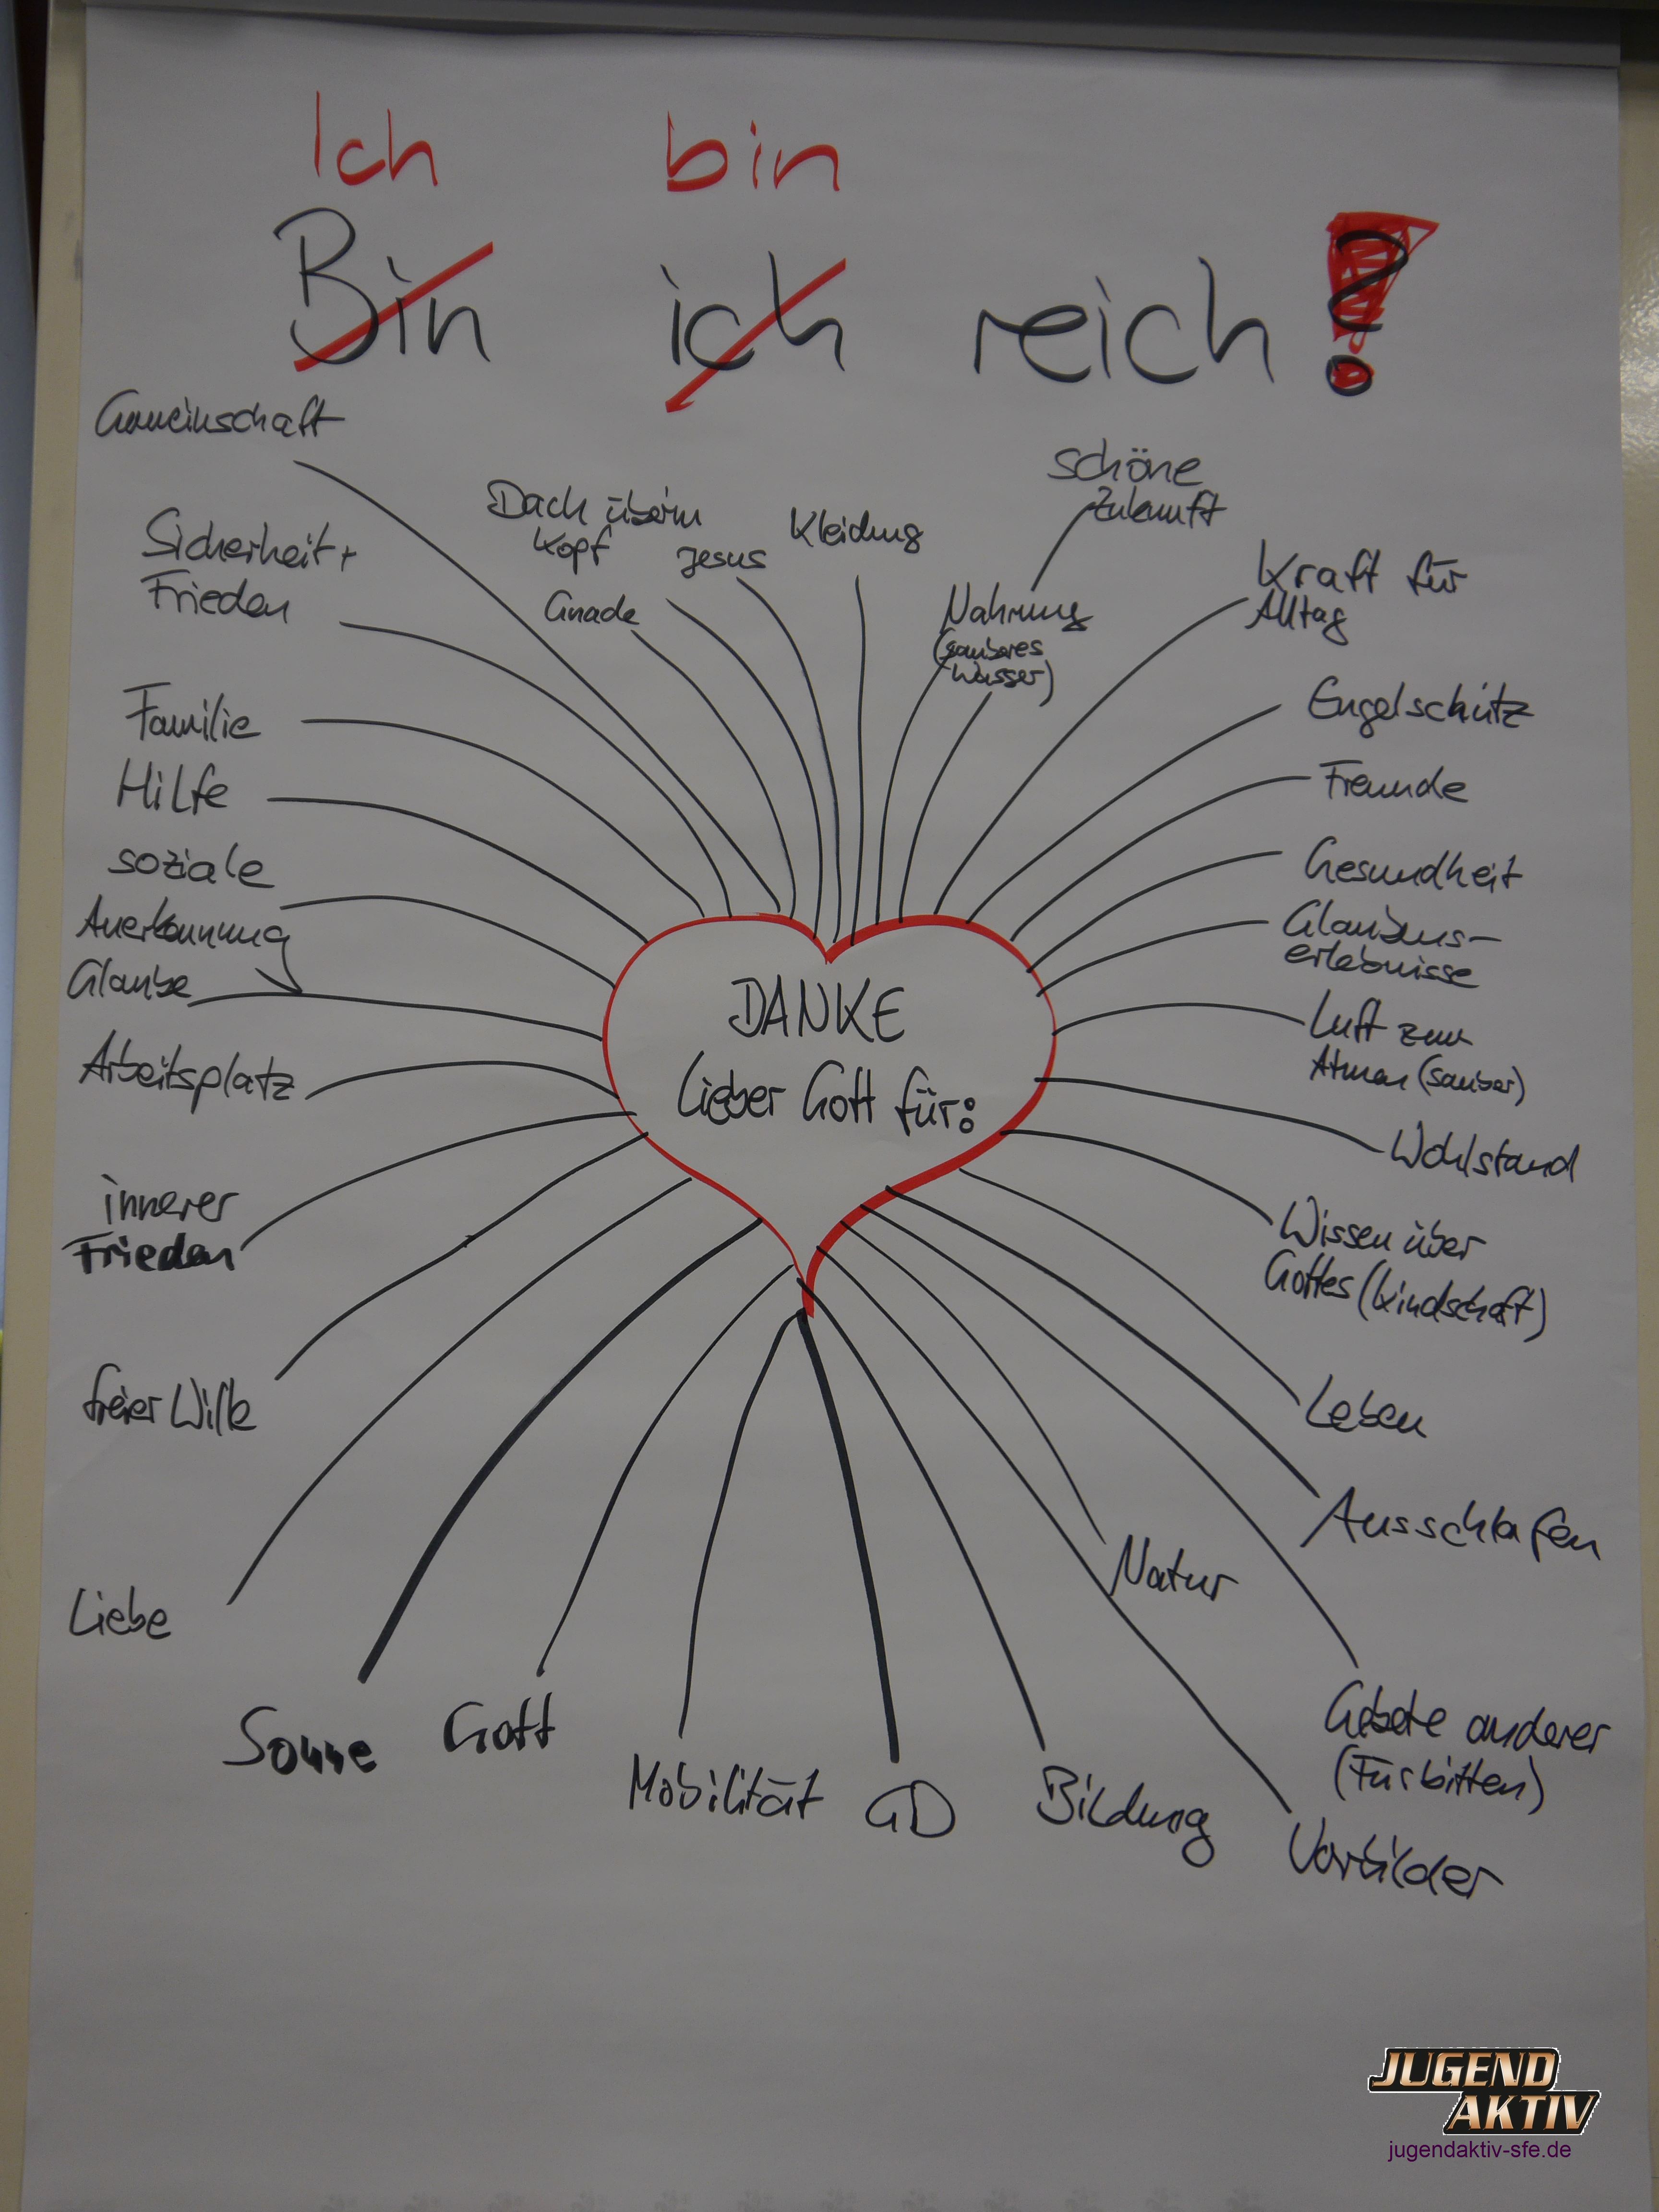 Ich bin
Bin ich reich?
Gemeinschaft
Sicherheit +
Frieden
Familie
Hilfe
soziale
Anerkennung
Glaube
Arbeitsplatz
innerer
Frieden
freier Wille
Liebe
Dach überm
Kopf
Gnade
Jesus
Kleidung
schöne
Zukunft
Nahrung
(sauberes
Wasser)
Kraft für
Alltag
Engelschutz
Freunde
Gesundheit
Glaubens-
erlebnisse
Luft zum
Atmen (sauber)
Wohlstand
Wissen über
Gottes (kindschaft)
Leben
Ausschlafen
DANKE
Lieber Gott für:
Sonne
Gott
Mobilität
GD
Bildung
Natur
Gebete anderer
(Fürbitten)
Vorbilder
JUGEND
AKTIV
jugendaktiv-sfe.de